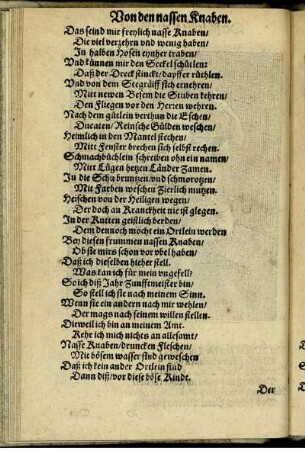 Von den nassen Knaben.
Das seind mir freylich nasse Knaben/
Die viel verzehren vnd wenig haben/
In halben Hosen eynher traben/
Vnd künnen mir den Seckel schütlen:
Daß der Dreck stinckt/ dapffer rüthlen.
Vnd von dem Stegräiff sich ernehren/
Mitt newen Besem die Stuben kehren/
Den Fliegen vor den Herren wehren.
Nach dem gütlein verthun die Eschen/
Ducaten/ Reinsche Gülden weschen/
Heimlich in den Mantel stechen/
Mitt Fenster brechen sich selbst rechen.
Schmachbüchlein schreiben ohn ein namen/
Mitt Lügen hetzen Länder zamen.
In die Schu bruntzen/ vnd schmorotzen/
Mit Farben weschen Zierlich mutzen.
Heischen von der Heiligen wegen/
Der doch an Kranckheit nie ist glegen.
In der Kutten geistlich berden/
Dem dennoch möcht ein Örtlein werden
Bey diesen frummen nassen Knaben/
Ob sie mirs schon vor vbel haben/
Daß ich dieselben hieher stell.
Was kan ich für mein vngefell/
So ich diß Jahr Zunffmeister bin/
So stell ich sie nach meinem Sinn.
Wenn sie ein andern nach mir wehlen/
Der mags nach seinem willen stellen.
Dieweil ich bin an meinem Amt.
Kehr ich mich nichts an allesamt/
Nasse Knaben/ druncken Fleschen/
Mit bösem wasser sind geweschen
Daß ich kein ander Örtlein find
Dann diß/ vor diese böse Kindt.
Der